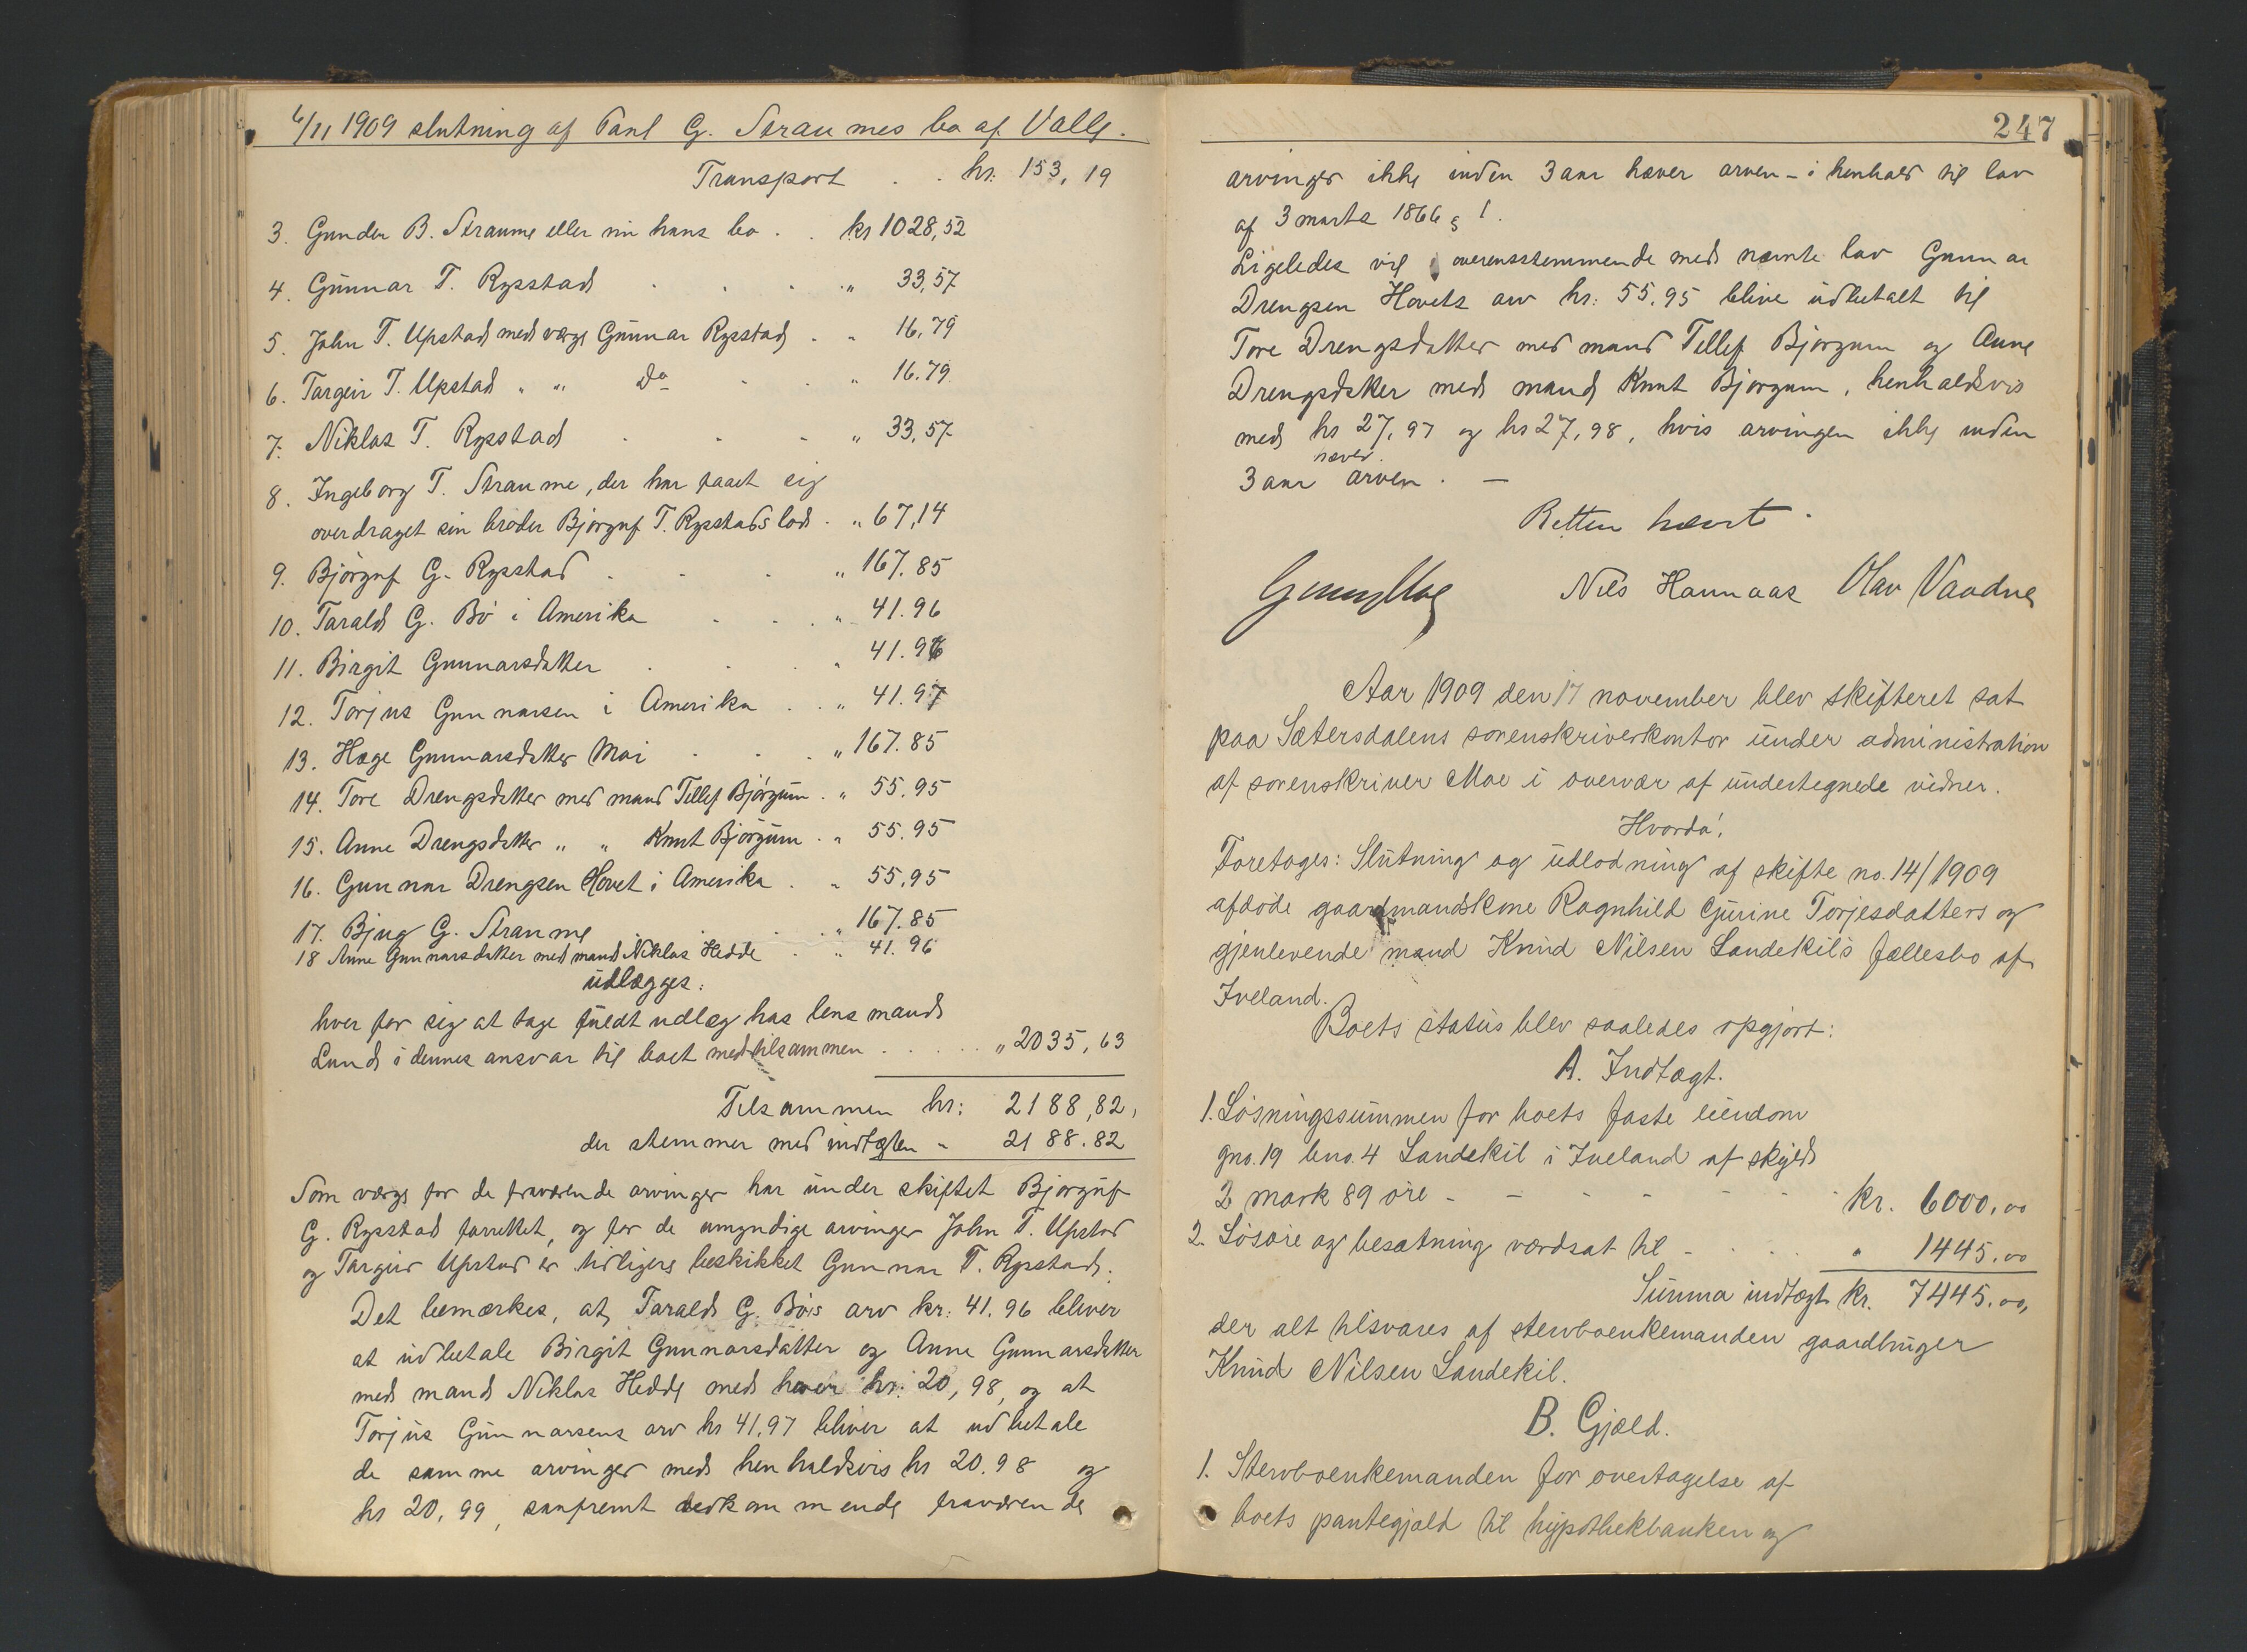 6/11 1909 slutning af Paul G. Straumes bo af Valle.
Transport . . kr. 153,19
3. Gunder B. Straume eller nu hans bo . . kr 1028,52
4. Gunnar T. Rysstad . . . „ 33,57
5. John T. Upstad med værge Gunnar Rysstad . „ 16,79
6. Targeir T. Upstad „ „ do . . „ 16.79
7. Niklas T. Rysstad . . . „ 33,57
8. Ingeborg T. Straume, der har faaet sig
overdraget sin broder Bjørguf T. Rysstads lod . „ 67,14
9. Bjørguf G. Rysstad . . . „ 167.85
10. Tarald G. Bö i Amerika . . . „ 41.96
11. Birgit Gunnarsdatter . . . „ 41.96
12. Torjus Gunnarsen i Amerika . . „ 41.97
13. Hæge Gunnarsdatter Moi . . . „ 167.85
14. Tore Drengsdatter med mand Tellef Bjørgum . „ 55.95
15. Anne Drengsdatter „ „ Knut Bjørgum . „ 55.95
16. Gunnar Drengsen Hovet i Amerika . „ 55.95
17. Bjug G. Straume . . . „ 167.85
18 Anne Gunnarsdatter med mand Niklas Hedde . „ 41.96
udlægges:
hver for sig at tage fuldt udlæg hos lensmand
Lund i dennes ansvar til boet med tilsammen . . . . . „ 2035,63
Tilsammen kr: 2188,82,
der stemmer med indtægten „ 2188.82
Som værge for de fraværende arvinger har under skiftet Bjørguf
G. Rysstad forrettet, og for de umyndige arvinger John T. Upstad
og Targeir Upstad er tidligere beskikket Gunnar T. Rysstad.
Det bemærkes, at Tarald G. Bö's arv kr: 41.96 bliver
at udbetale Birgit Gunnarsdatter og Anne Gunnarsdatter
med mand Niklas Hedde med hver kr: 20,98, og at
Torjus Gunnarsens arv kr 41,97 bliver at udbetale
de samme arvinger med henholdsvis kr 20.98 og
kr 20,99, saafremt vedkommende fraværende
247
arvinger ikke inden 3 aar hæver arven - i henhold til lov
af 3 marts 1866 § 1.
Ligeledes vil overensstemmende med nævnte lov Gunnar
Drengsen Hovets arv kr: 55,95 blive udbetalt til
Tore Drengsdatter med mand Tellef Bjørgum og Anne
Drengsdatter med mand Knut Bjørgum, henholdsvis
med kr 27,97 og kr 27,98, hvis arvingen ikke inden
hæver
3 aar arven. —
Retten hævet.
Nils Hannaas Olav Vaadne
Aar 1909 den 17 november blev skifteret sat
paa Sætersdalens sorenskriverkontor under administration
af sorenskriver Moe i overvær af undertegnede vidner.
Hvorda!
Foretoges: Slutning og udlodning af skifte no. 14/1909
afdöde gaardmandskone Ragnhild Gurine Torjesdatters og
gjenlevende mand Knud Nilsen Landekil's fællesbo af
Iveland.
Boets status blev saaledes opgjort:
A. Indtægt.
1. Lösningssummen for boets faste eiendom
gno. 19 bno. 4 Landekil i Iveland af skyld
2 mark 89 öre - - - - - - . kr. 6000,00
2. Lösöre og besætning værdsat til - . . . „ 1445.00
Summa indtægt kr. 7445.00,
der alt tilsvares af stervboenkemanden gaardbruger
Knud Nilsen Landekil.
B. Gjæld.
1. Stervboenkemanden for overtagelse af
boets pantegjæld til hypothekbanken og